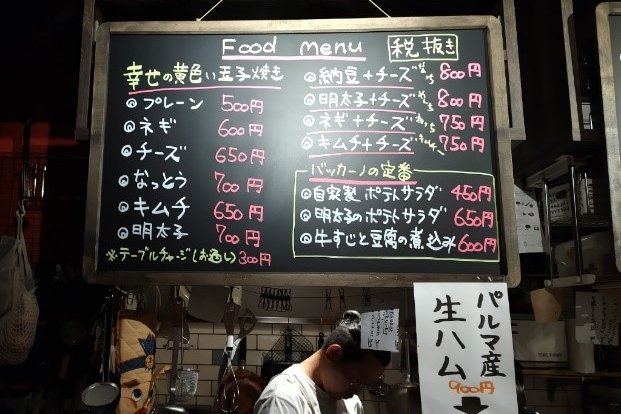 Food menu
税抜き
幸せの黄色い玉子焼き
◎プレーン 500円
◎ネギ 600円
◎チーズ 650円
◎なっとう 700円
◎キムチ 650円
◎明太子 700円
※テーブルチャージ(お通し) 300円
◎納豆+チーズ 800円
◎明太子+チーズ 800円
◎ネギ+チーズ 750円
◎キムチ+チーズ 750円
バッカーノの定番
◎自家製ポテトサラダ 450円
◎明太子のポテトサラダ 650円
◎牛すじと豆腐の煮込み 600円
パルマ産
生ハム
900円